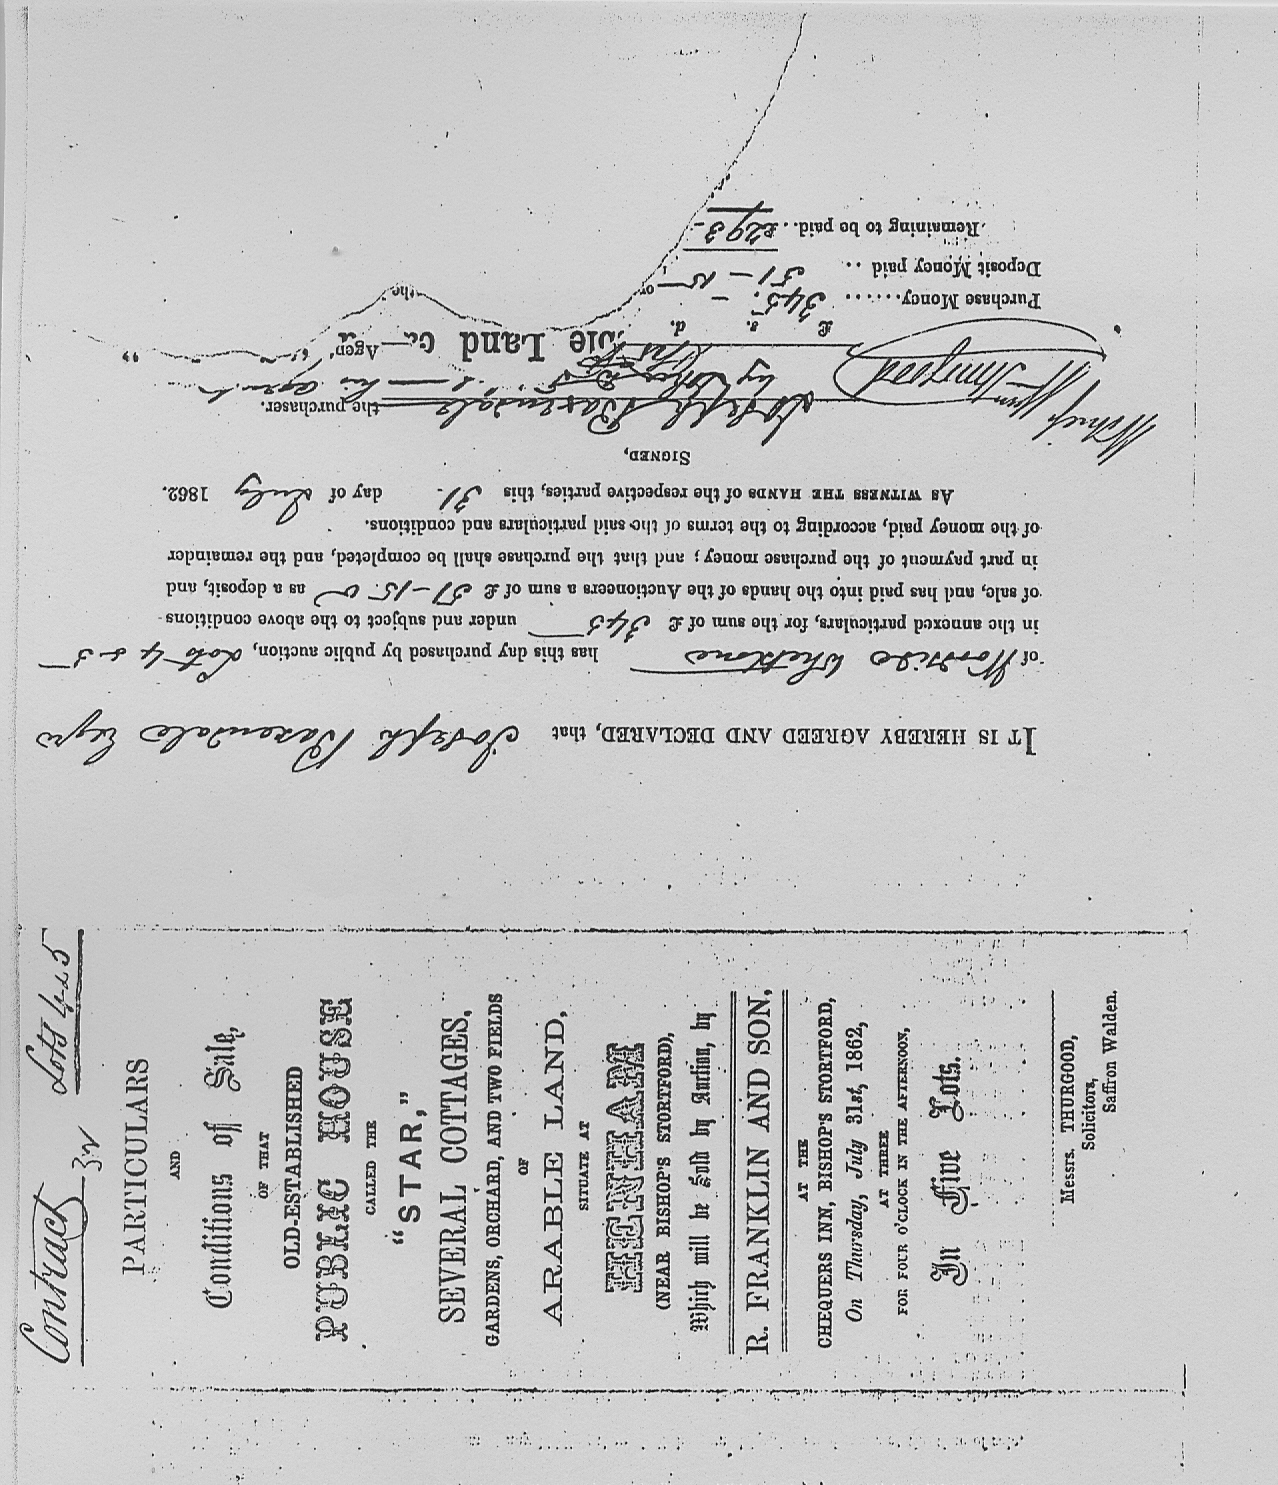 Contract Lots 4 & 5
PARTICULARS
AND
Conditions of Sale,
OF THAT
OLD-ESTABLISHED
PUBLIC HOUSE
CALLED THE
"STAR,"
SEVERAL COTTAGES,
GARDENS, ORCHARD, AND TWO FIELDS
OF
ARABLE LAND,
SITUATE AT
HENHAM
(NEAR BISHOP'S STORTFORD),
Which will be Sold by Auction, by
R. FRANKLIN AND SON,
AT THE
CHEQUERS INN, BISHOP'S STORTFORD,
On Thursday, July 31st, 1862,
AT THREE
FOR FOUR O'CLOCK IN THE AFTERNOON,
In Five Lots.
Messrs. THURGOOD,
Solicitors,
Saffron Walden.
IT IS HEREBY AGREED AND DECLARED, that Joseph Baxendale Esqre
of Woodside Whetstone has this day purchased by public auction, Lots 4 & 5
in the annexed particulars, for the sum of £ 345 under and subject to the above conditions
of sale, and has paid into the hands of the Auctioneers a sum of £ 51-15-0 as a deposit, and
in part payment of the purchase money; and that the purchase shall be completed, and the remainder
of the money paid, according to the terms of the said particulars and conditions.
AS WITNESS THE HANDS of the respective parties, this 31. day of July 1862.
SIGNED,
Joseph Baxendale the purchaser.
by his agent
Witness Wm Thurgood
ble Land Agen
£ s. d.
Purchase Money....... 345. - or the
Deposit Money paid .. 51 - 15 -
Remaining to be paid... £293 -